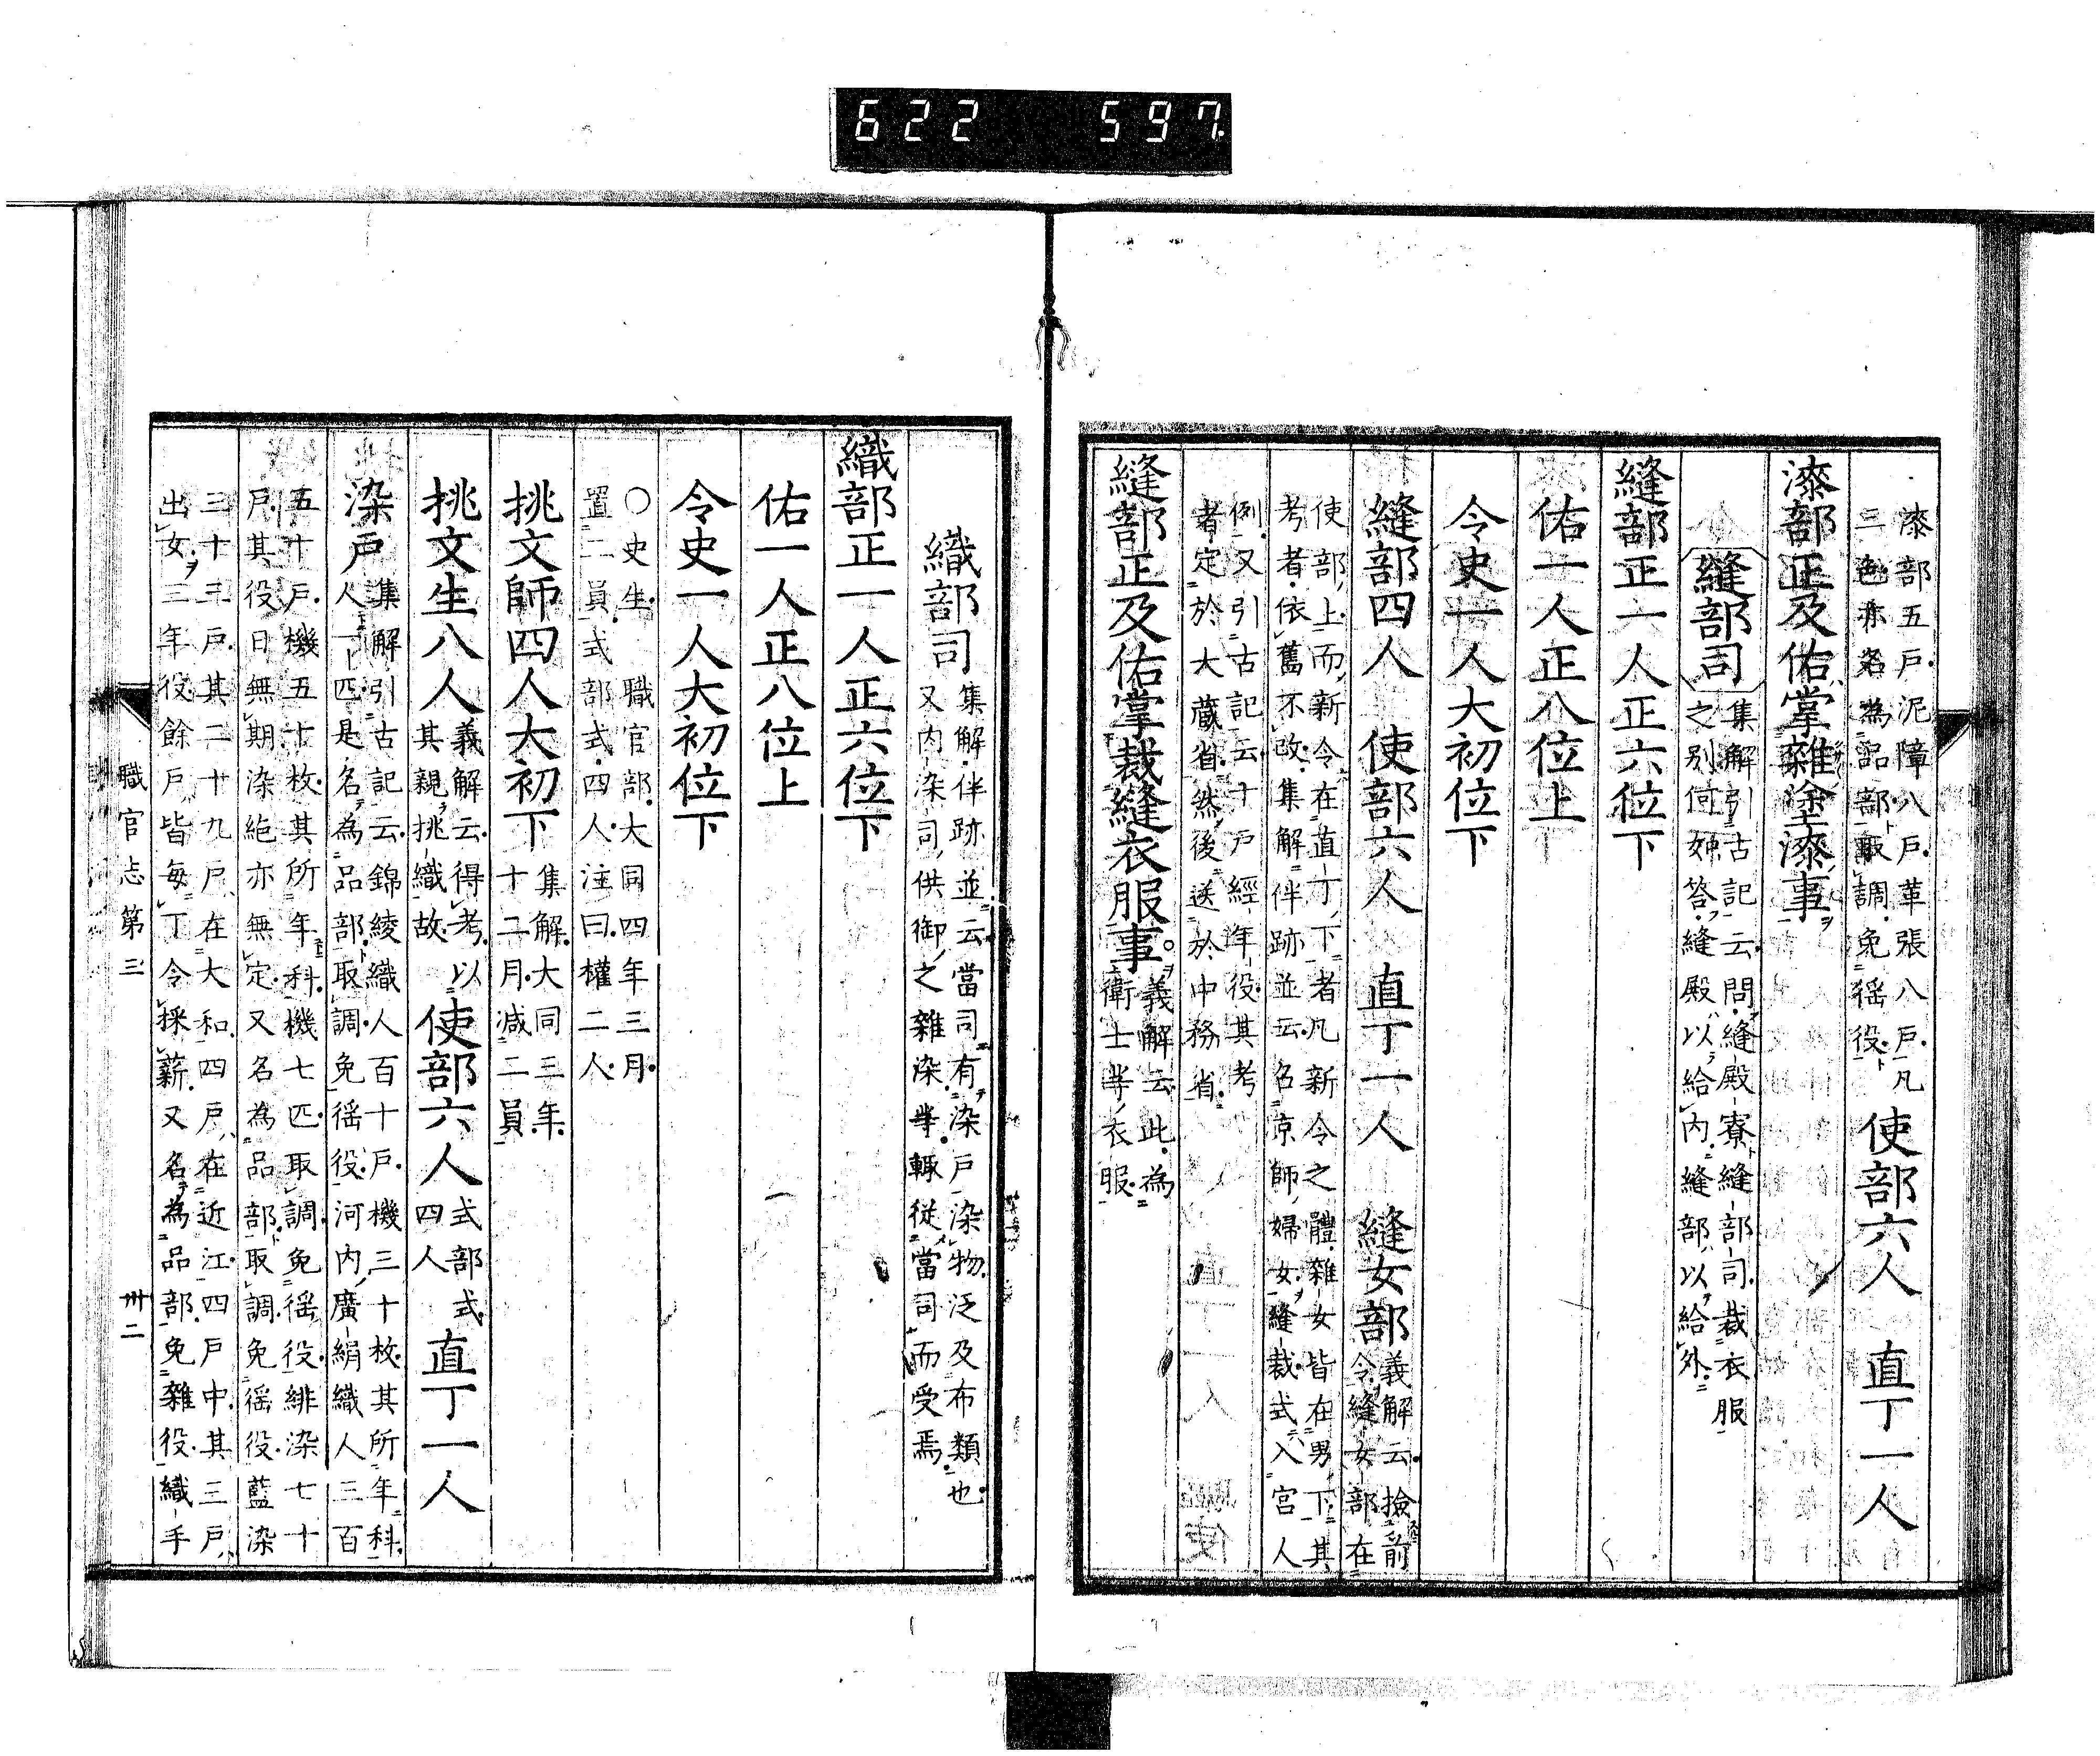 622 597
漆部五戸泥障八戸革張八戸凡
三色亦名為品部取調免徭役
使部六人 直丁一人
漆部正及佑掌雜塗漆事
縫部司
集解引古記云問縫殿寮縫部司裁衣服
之別何如答縫殿以給内縫部以給外
縫部正一人正六位下
佑一人正八位上
令史一人大初位下
縫部四人 使部六人 直丁一人 縫女部
義解云撿前
令縫女部在
使部上而新令在直丁下者凡新令之體雜女皆在男下其
考者依舊不改集解伴跡並云名京師婦女縫裁式入宮人
例又引古記云十戸經年役其考
者定於大蔵省然後送於中務省
縫部正及佑掌裁縫衣服事
義解云此為
衛士等衣服
織部司
集解伴跡並云當司有染戸染物泛及布類也
又内染司供御之雜染等輙従當司而受焉
織部正一人正六位下
佑一人正八位上
令史一人大初位下
○史生職官部大同四年三月
置二員式部式四人注曰權二人
挑文師四人大初下
集解大同三年
十二月減二員
挑文生八人
義解云得考以
其親挑織故
使部六人
式部式
四人
直丁一人
染戸
集解引古記云錦綾織人百十戸機三十枚其所年科
人一匹是名為品部取調免徭役河内廣絹織人三百
五十戸機五十枚其所年科機七匹取調免徭役緋染七十
戸其役日無期染絁亦無定又名為品部取調免徭役藍染
三十三戸其二十九戸在大和四戸在近江四戸中其三戸
出女三年役餘戸皆毎丁令採薪又名為品部免雜役織手
職官志第三 卅二